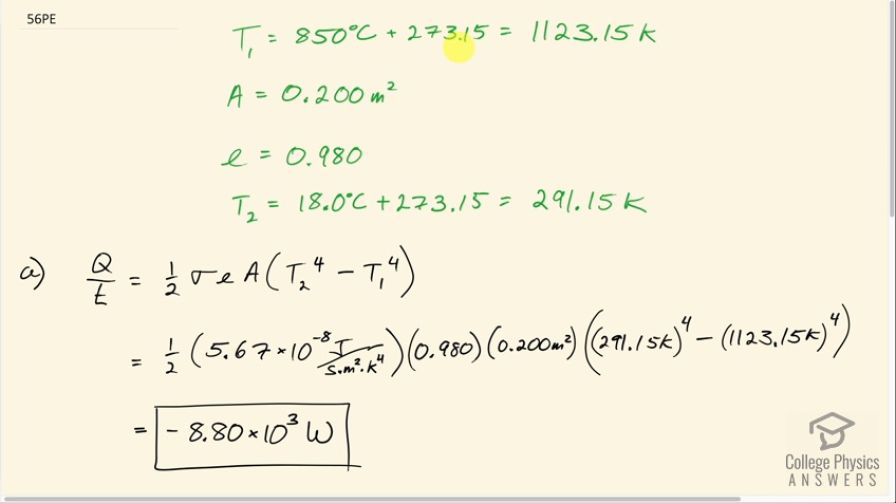 56PE
T₁ = 850°C + 273.15 = 1123.15 K
A = 0.200 m²
e = 0.980
T₂ = 18.0°C + 273.15 = 291.15 K
a) Q/t = 1/2 σ e A (T₂⁴ − T₁⁴)
= 1/2 (5.67 × 10⁻⁸ J/s·m²·K⁴)(0.980)(0.200m²)((291.15K)⁴ − (1123.15K)⁴)
= − 8.80 × 10³ W
College Physics
ANSWERS